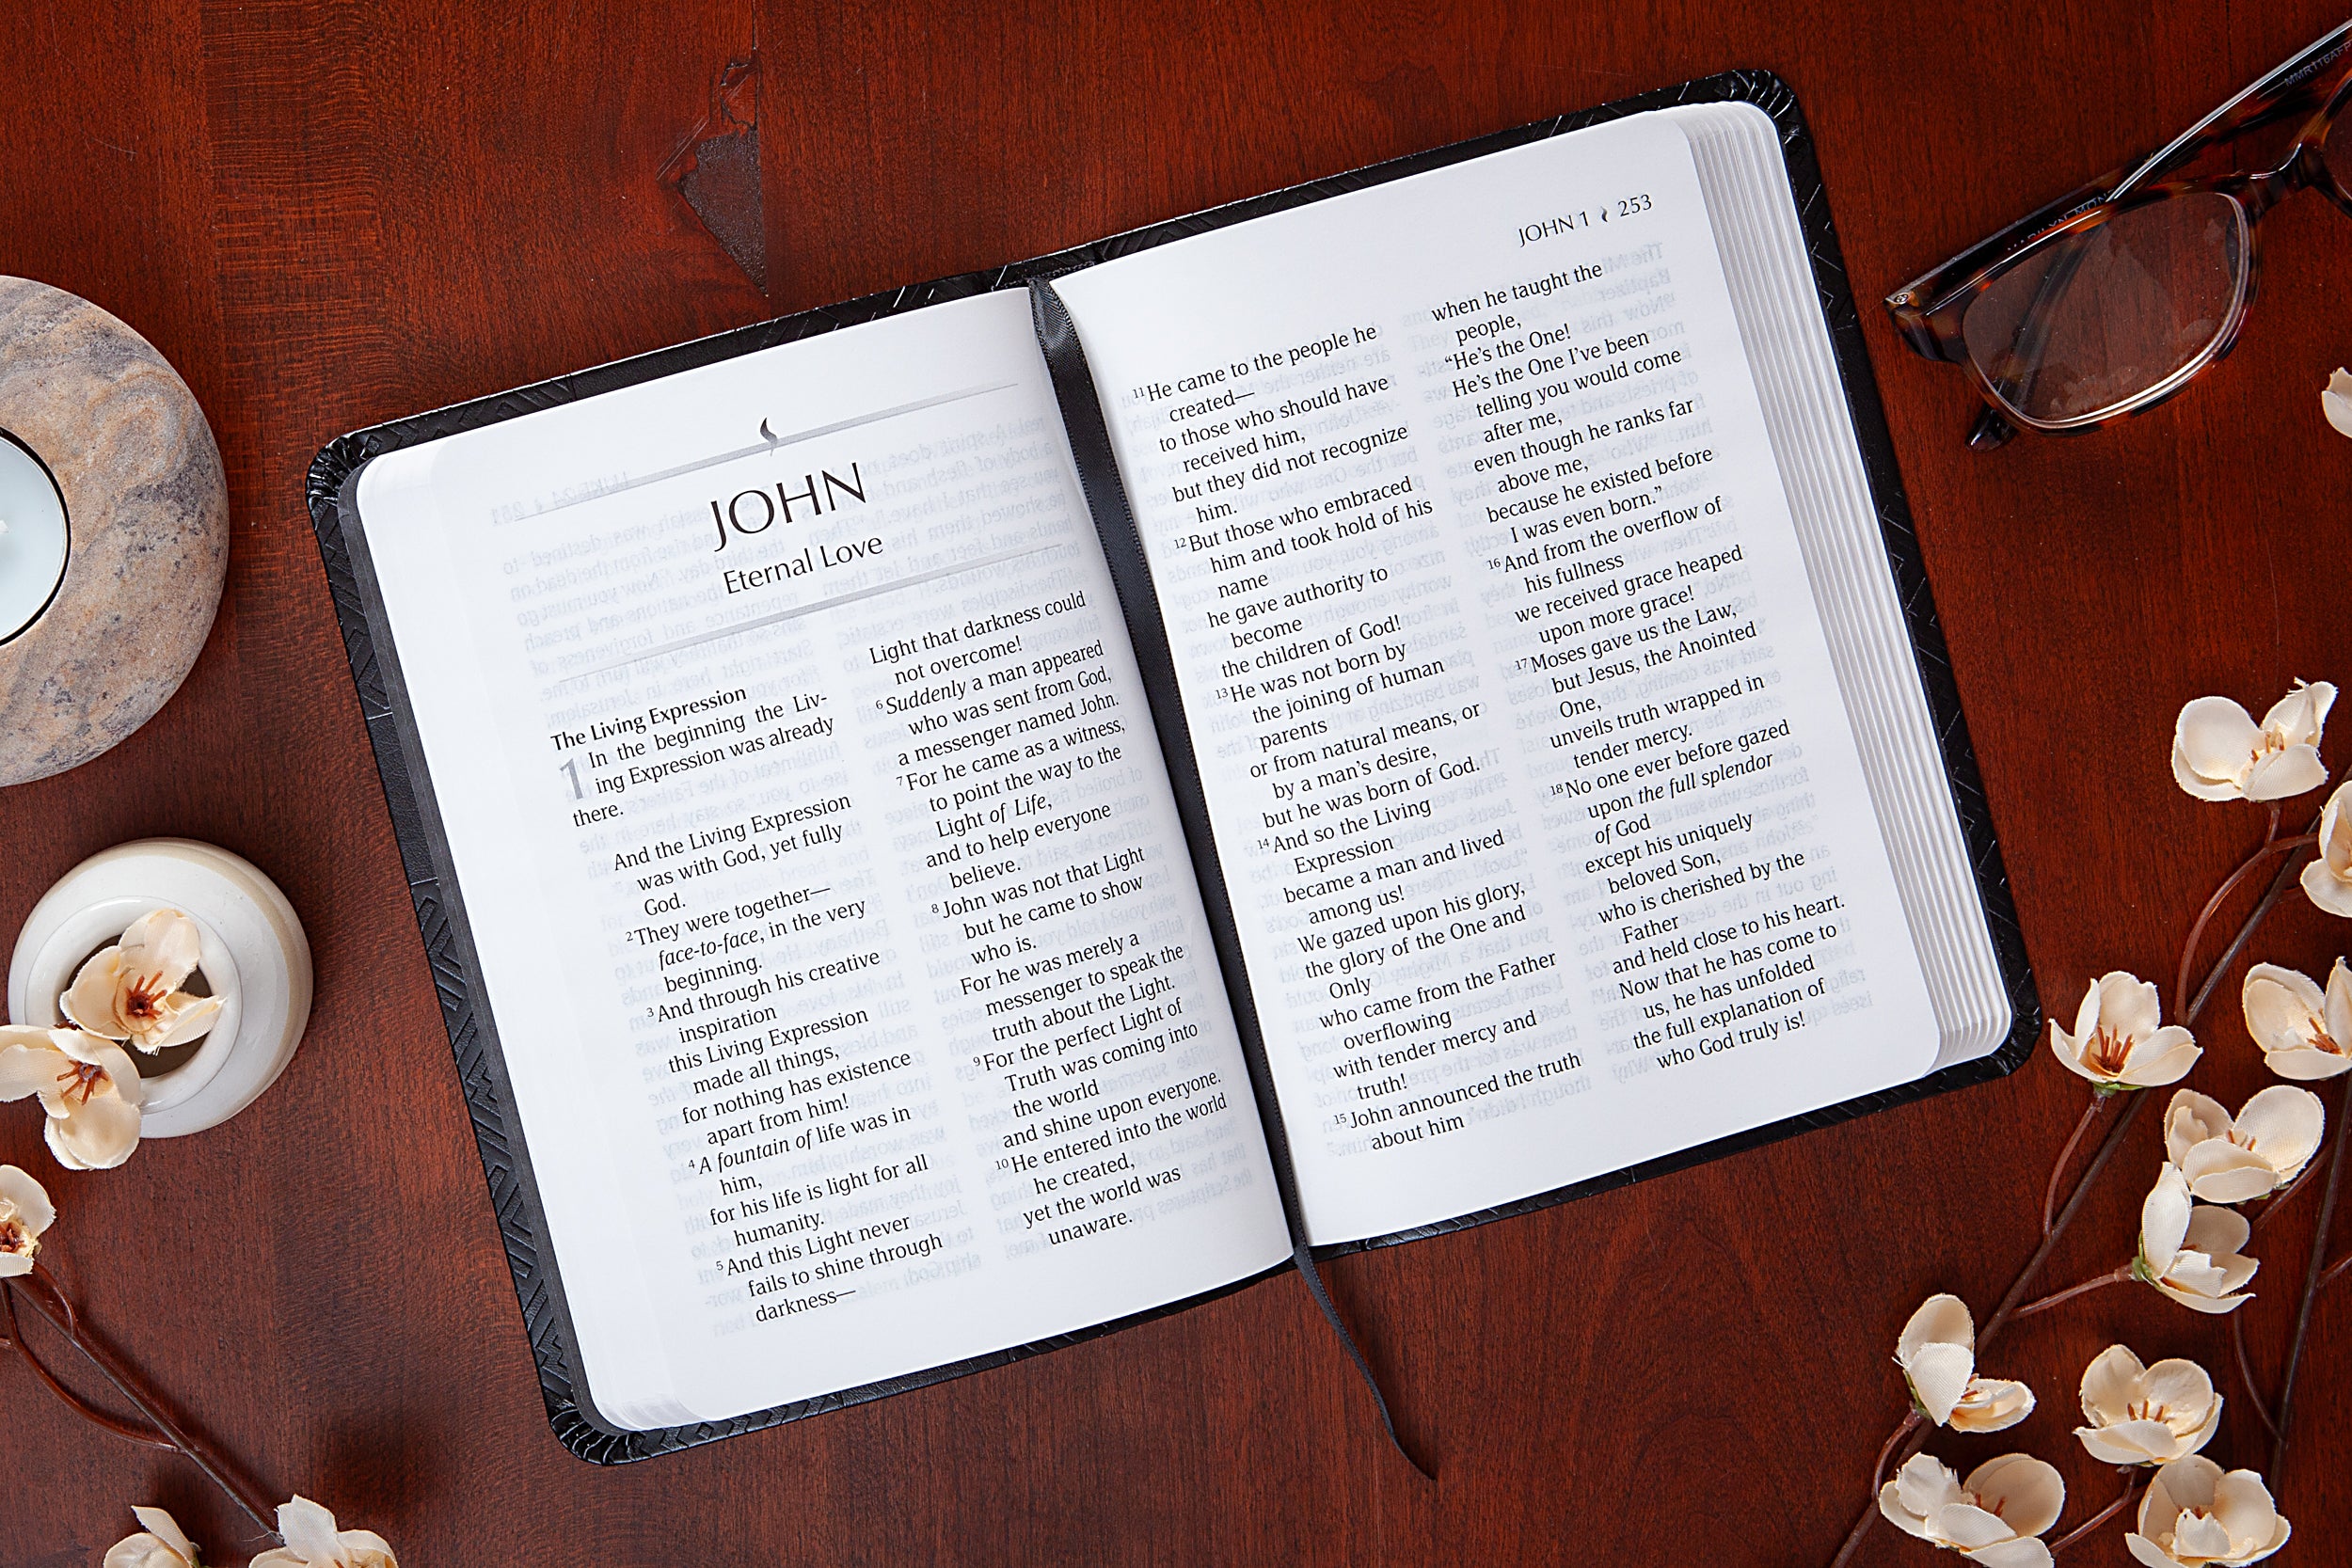 JOHN
Eternal Love
The Living Expression
1 In the beginning the Liv-
ing Expression was already
there.
And the Living Expression
was with God, yet fully
God.
2 They were together—
face-to-face, in the very
beginning.
3 And through his creative
inspiration
this Living Expression
made all things,
for nothing has existence
apart from him!
4 A fountain of life was in
him,
for his life is light for all
humanity.
5 And this Light never
fails to shine through
darkness—
Light that darkness could
not overcome!
6 Suddenly a man appeared
who was sent from God,
a messenger named John.
7 For he came as a witness,
to point the way to the
Light of Life,
and to help everyone
believe.
8 John was not that Light
but he came to show
who is.
For he was merely a
messenger to speak the
truth about the Light.
9 For the perfect Light of
Truth was coming into
the world
and shine upon everyone.
10 He entered into the world
he created,
yet the world was
unaware.
JOHN 1 253
11 He came to the people he
created—
to those who should have
received him,
but they did not recognize
him.
12 But those who embraced
him and took hold of his
name
he gave authority to
become
the children of God!
13 He was not born by
the joining of human
parents
or from natural means, or
by a man's desire,
but he was born of God.
14 And so the Living
Expression
became a man and lived
among us!
We gazed upon his glory,
the glory of the One and
Only
who came from the Father
overflowing
with tender mercy and
truth!
15 John announced the truth
about him
when he taught the
people,
“He's the One!
He's the One I've been
telling you would come
after me,
even though he ranks far
above me,
because he existed before
I was even born.”
16 And from the overflow of
his fullness
we received grace heaped
upon more grace!
17 Moses gave us the Law,
but Jesus, the Anointed
One,
unveils truth wrapped in
tender mercy.
18 No one ever before gazed
upon the full splendor
of God
except his uniquely
beloved Son,
who is cherished by the
Father
and held close to his heart.
Now that he has come to
us, he has unfolded
the full explanation of
who God truly is!